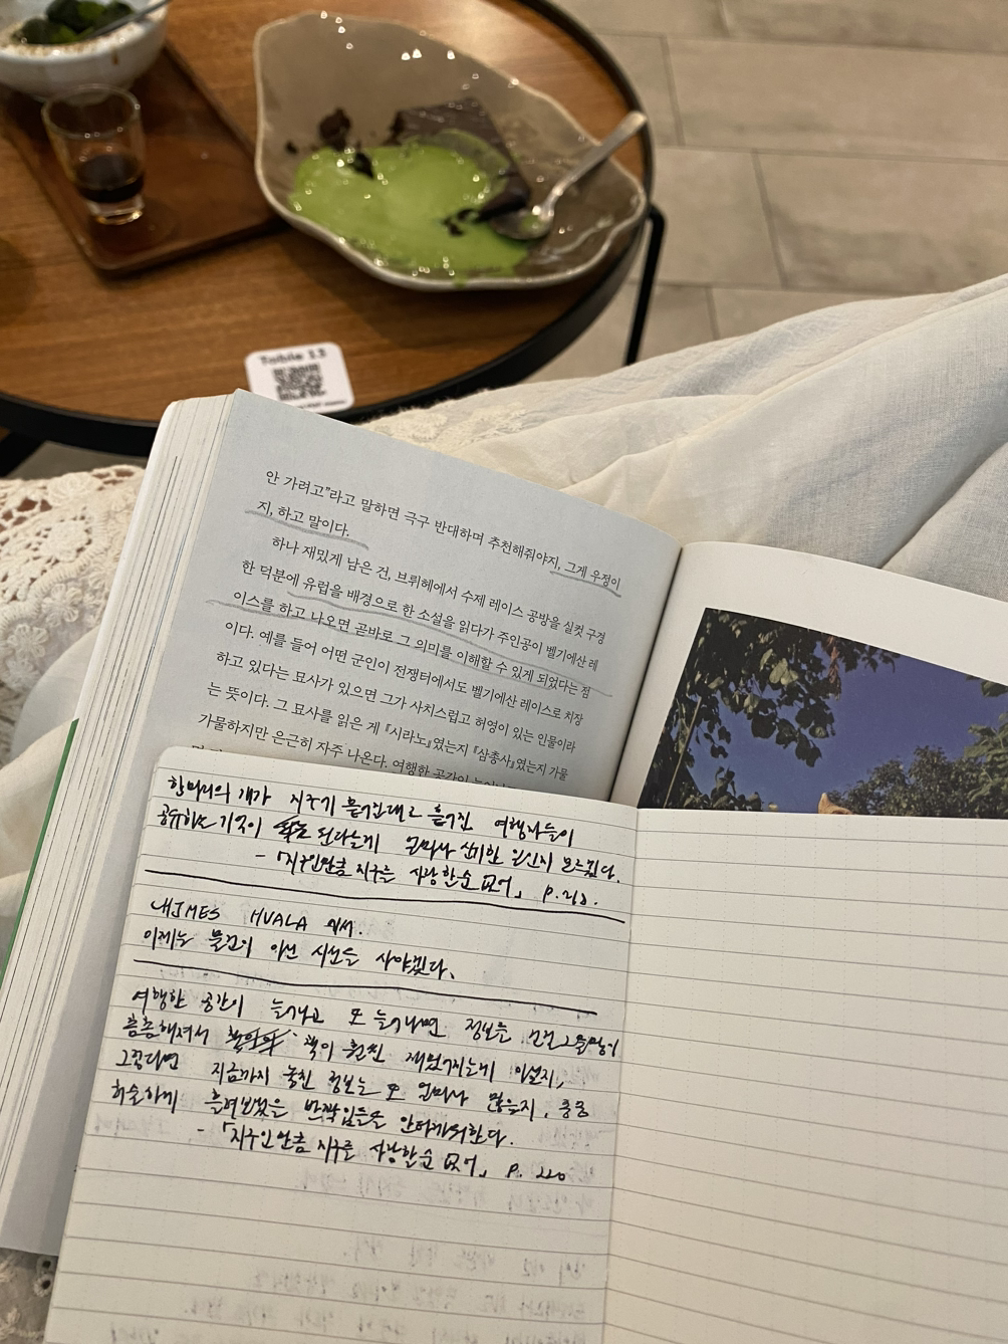 Table 13
안 가려고”라고 말하면 극구 반대하며 추천해줘야지, 그게 우정이
지, 하고 말이다.
하나 재밌게 남은 건, 브뤼헤에서 수제 레이스 공방을 실컷 구경
한 덕분에 유럽을 배경으로 한 소설을 읽다가 주인공이 벨기에산 레
이스를 하고 나오면 곧바로 그 의미를 이해할 수 있게 되었다는 점
이다. 예를 들어 어떤 군인이 전쟁터에서도 벨기에산 레이스로 치장
하고 있다는 묘사가 있으면 그가 사치스럽고 허영이 있는 인물이라
는 뜻이다. 그 묘사를 읽은 게 『시라노』였는지 『삼총사』였는지 가물
가물하지만 은근히 자주 나온다. 여행한 공간이
한 마리의 개가 지구가 흩어진 여행자들이
공유하는 기억이 된다는게 얼마나 신기한 일인지 모르겠다.
- 「지구인만큼 지구를 사랑할 순 없어」 p.210.
HVALA
이제는 물건이 아닌 사야겠다.
여행한 공간이 늘어나고 또 늘어나면 정보들
촘촘해져서 책이 훨씬 재밌어지는게 아닐지,
그렇다면 지금까지 놓친 정보는 또 얼마나 많을지, 종종
허술하게 흘려보냈을 반짝임들을 안타까워한다.
- 「지구인만큼 지구를 사랑할 순 없어」 p. 220